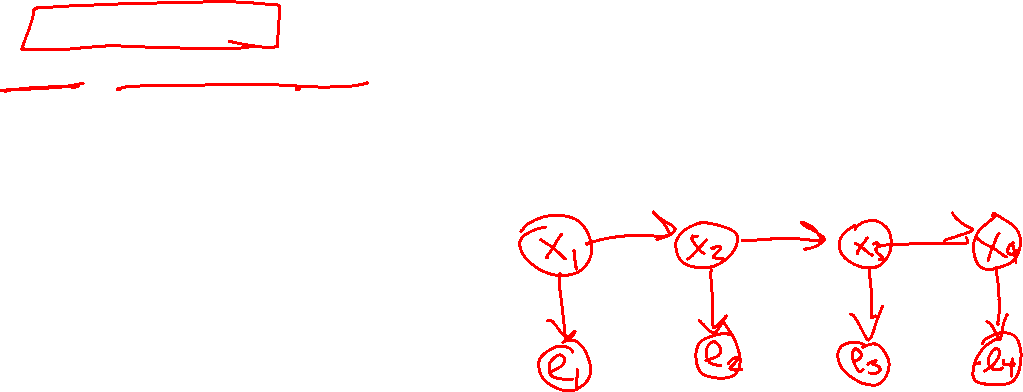 X1 X2 X3 X4
e1 e2 e3 e4